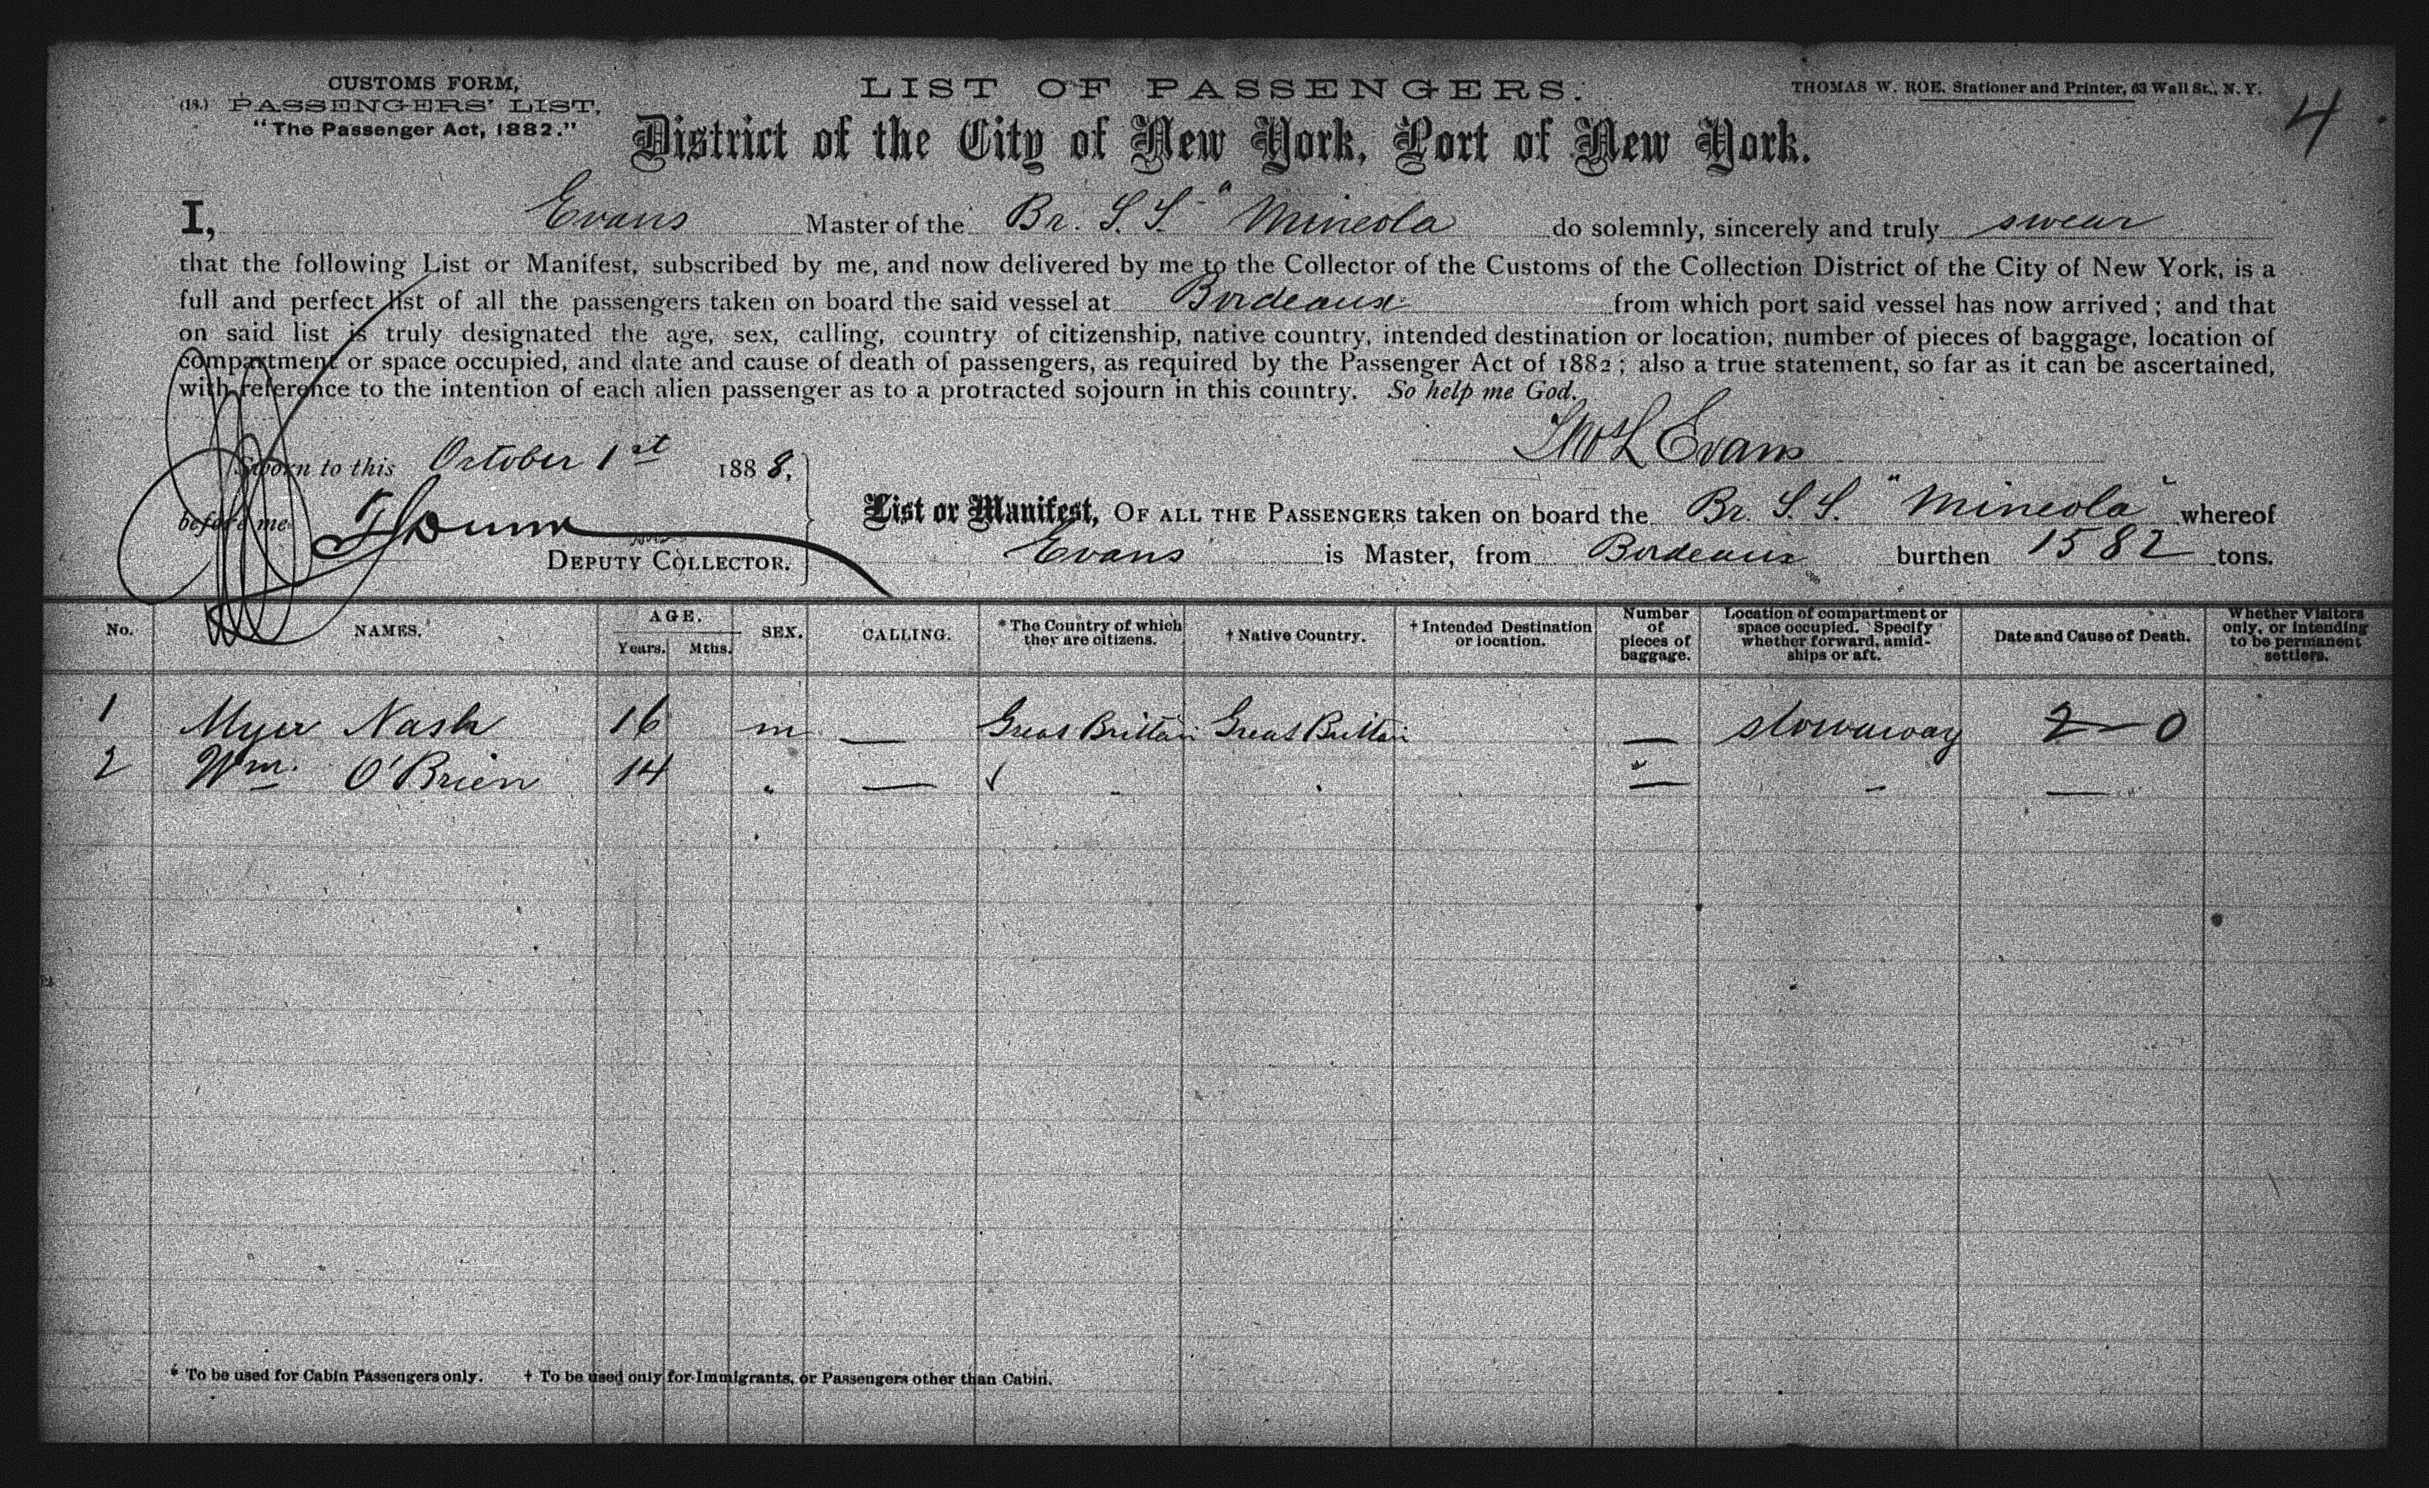 CUSTOMS FORM,
(18.) PASSENGERS' LIST,
"The Passenger Act, 1882."
LIST OF PASSENGERS.
THOMAS W. ROE, Stationer and Printer, 63 Wall St., N. Y.
4
District of the City of New York, Port of New York.
I, Evans Master of the Br. S. S. "Mineola do solemnly, sincerely and truly swear
that the following List or Manifest, subscribed by me, and now delivered by me to the Collector of the Customs of the Collection District of the City of New York, is a
full and perfect list of all the passengers taken on board the said vessel at Bordeaux from which port said vessel has now arrived; and that
on said list is truly designated the age, sex, calling, country of citizenship, native country, intended destination or location, number of pieces of baggage, location of
compartment or space occupied, and date and cause of death of passengers, as required by the Passenger Act of 1882; also a true statement, so far as it can be ascertained,
with reference to the intention of each alien passenger as to a protracted sojourn in this country. So help me God.
Evans
Sworn to this October 1st 1888,
before me
DEPUTY COLLECTOR.
List or Manifest, OF ALL THE PASSENGERS taken on board the Br. S. S. "Mineola" whereof
Evans is Master, from Bordeaux burthen 1582 tons.
No. NAMES. AGE. Years. Mths. SEX. CALLING. * The Country of which they are citizens. † Native Country. † Intended Destination or location. Number of pieces of baggage. Location of compartment or space occupied. Specify whether forward, amidships or aft. Date and Cause of Death. Whether Visitors only, or intending to be permanent settlers.
1 Myer Nash 16 m — Great Brittain Great Brittain — stowaway 2—0
2 Wm. O'Brien 14 " — ✓ " " — " —
* To be used for Cabin Passengers only. † To be used only for Immigrants, or Passengers other than Cabin.